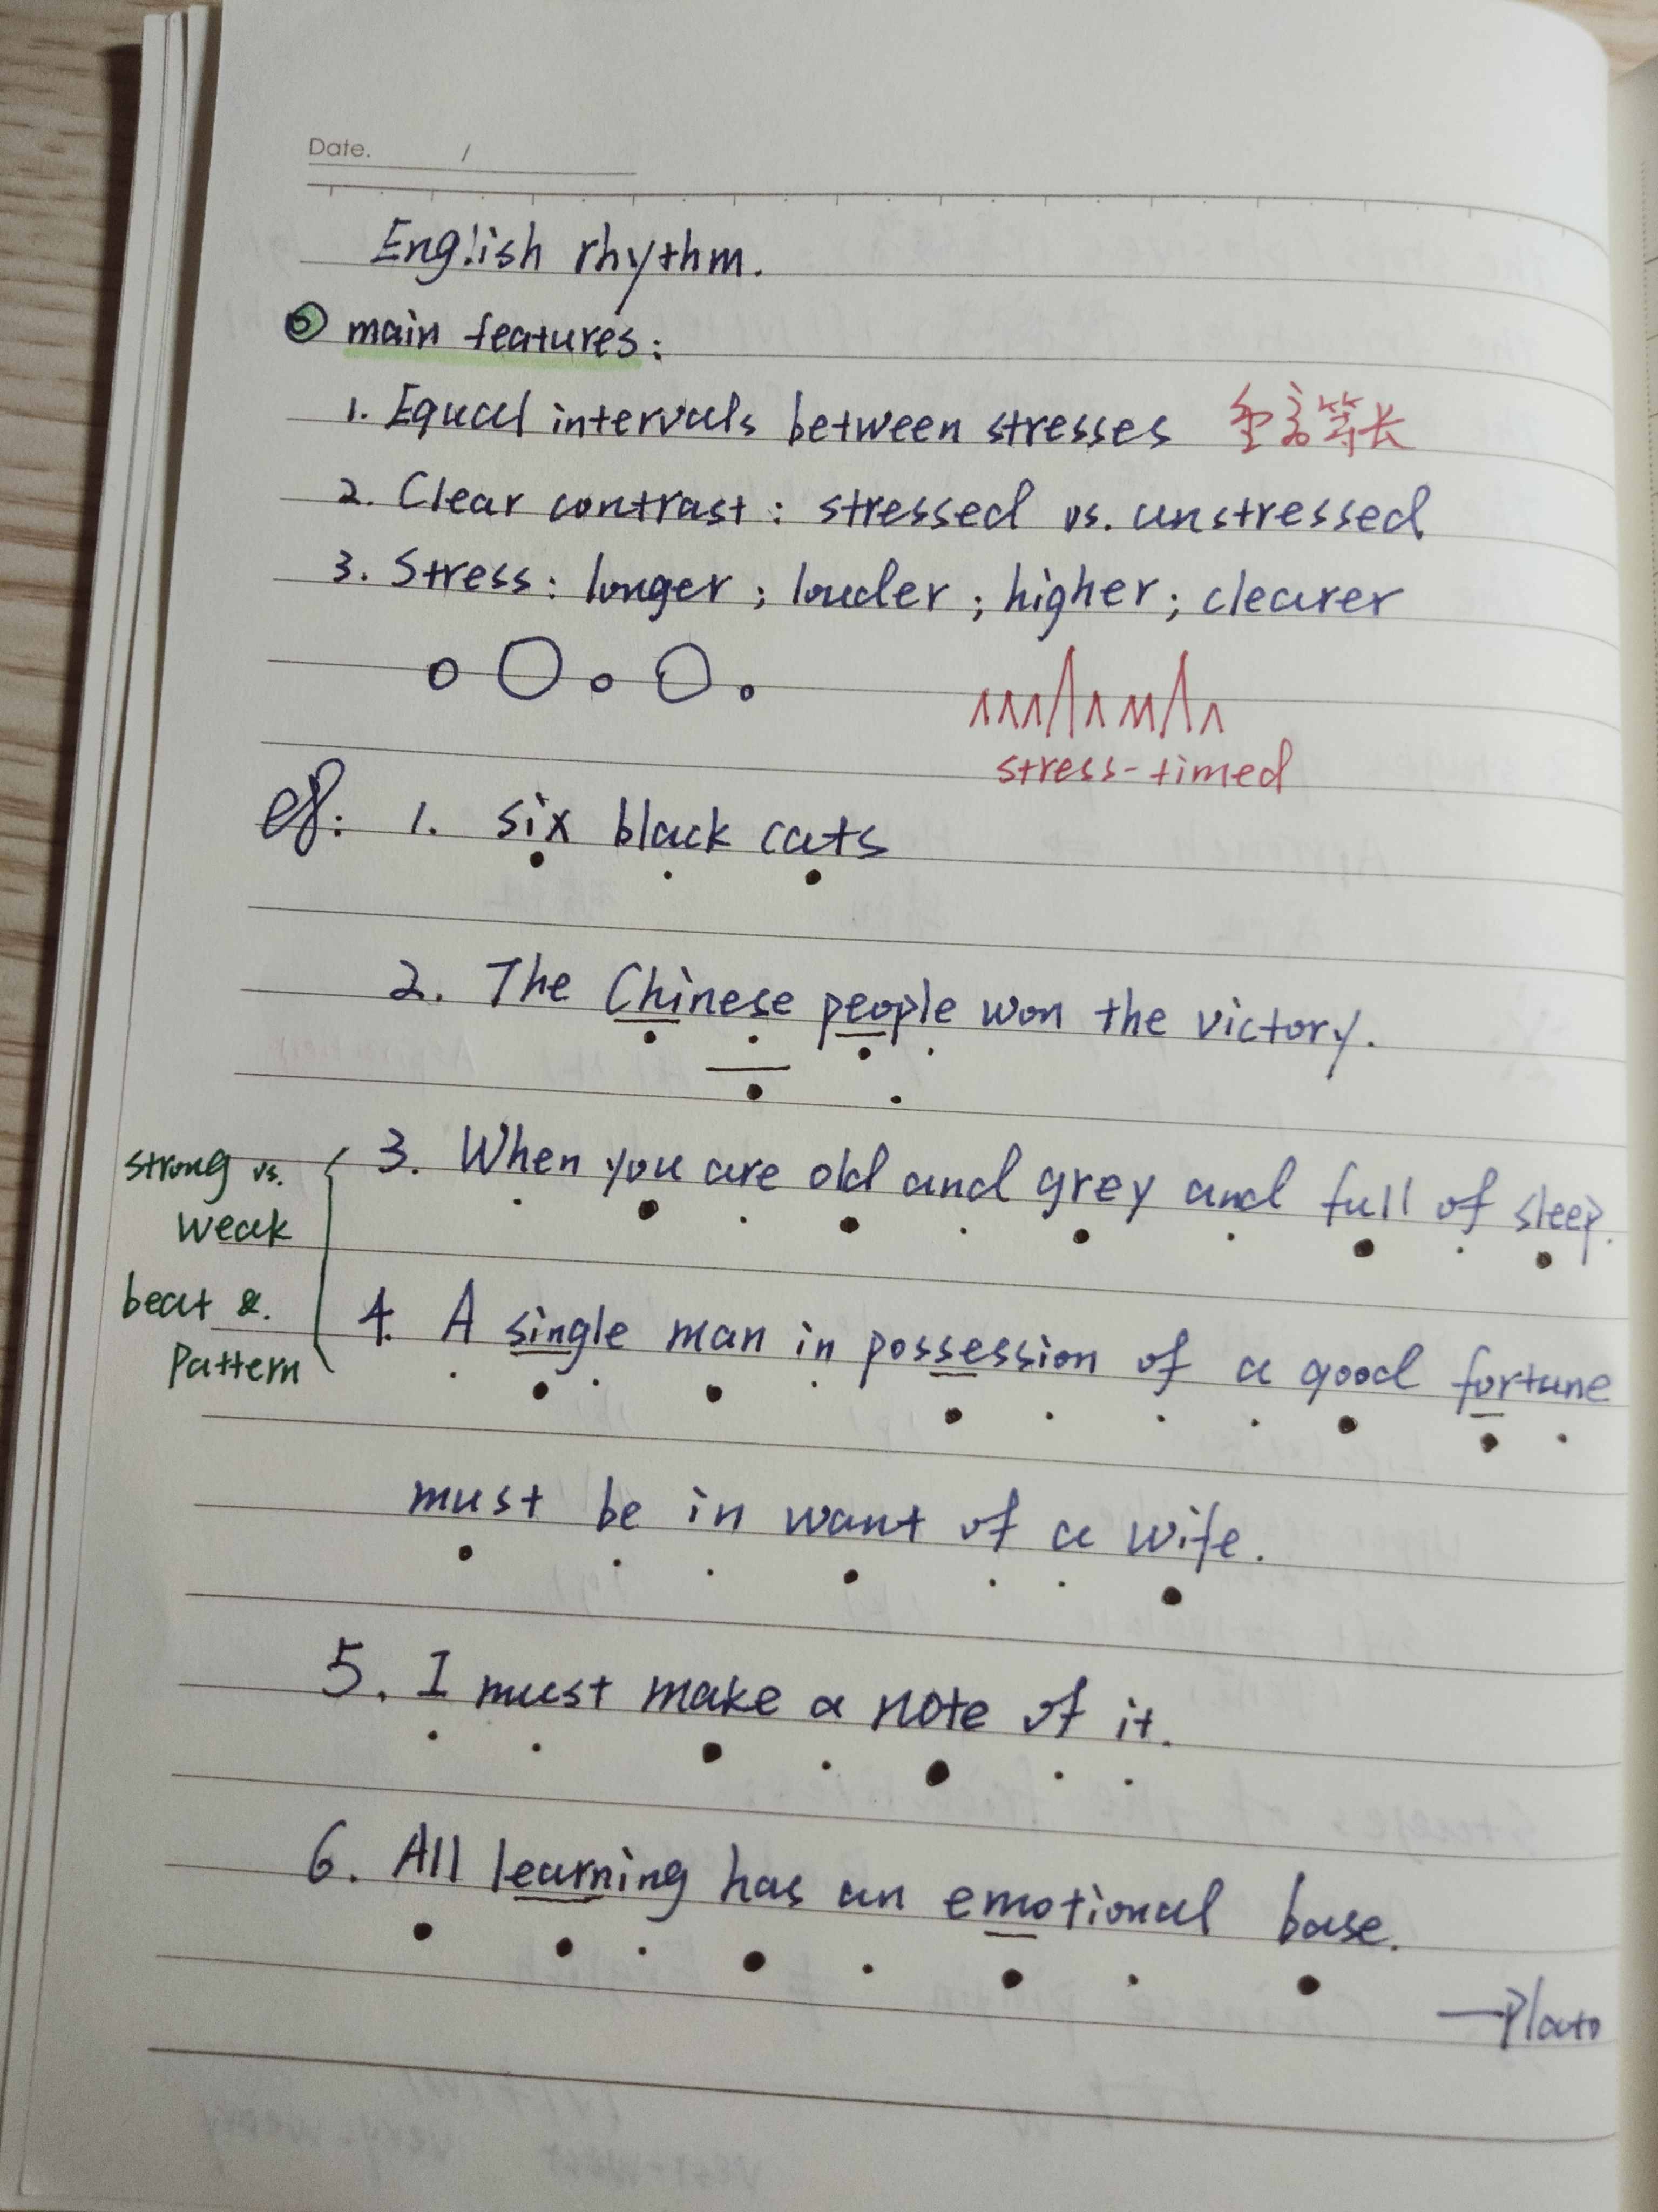 Date. /
English rhythm.
main features:
1. Equal intervals between stresses 重音等长
2. Clear contrast: stressed vs. unstressed
3. Stress: longer; louder; higher; clearer
stress-timed
eg: 1. six black cats
2. The Chinese people won the victory.
strong vs. weak
beat &. Pattern
3. When you are old and grey and full of sleep.
4. A single man in possession of a good fortune
must be in want of a wife.
5. I must make a note of it.
6. All learning has an emotional base.
—Plato